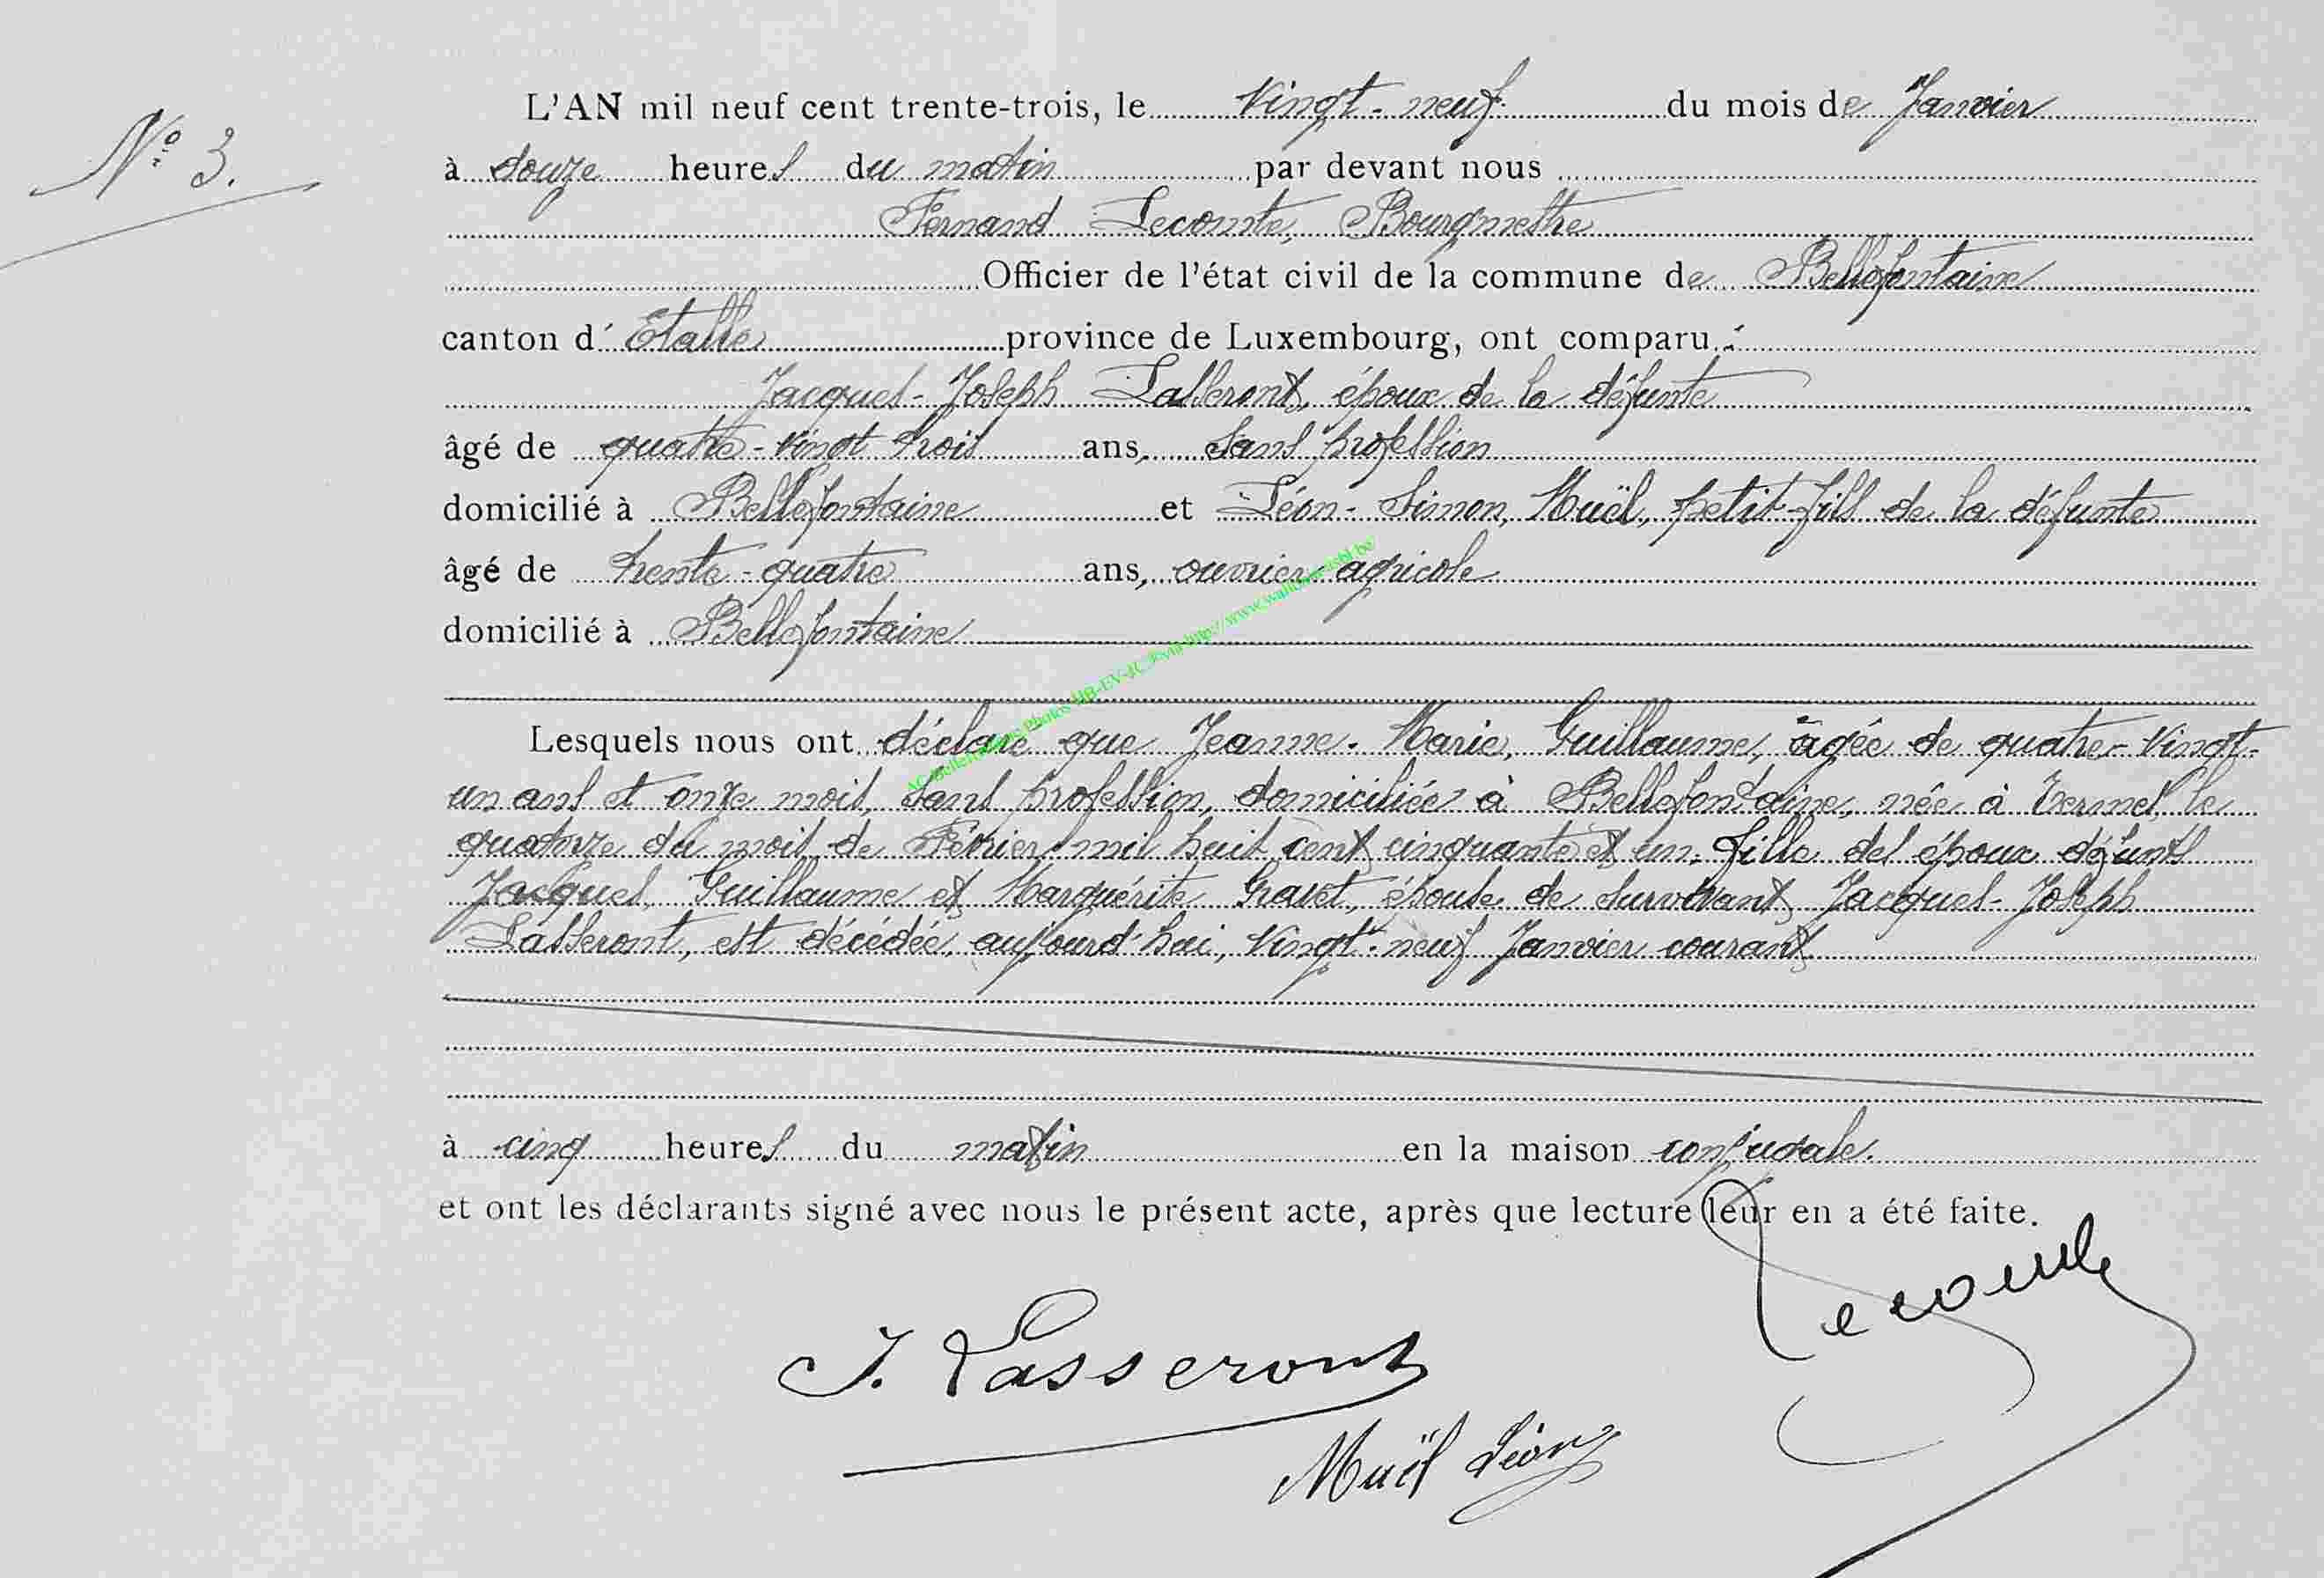 N° 3.
L'AN mil neuf cent trente-trois, le Vingt-neuf du mois de Janvier
à douze heures du matin par devant nous
Fernand Lecomte, Bourgmestre
Officier de l'état civil de la commune de Bellefontaine
canton d' Etalle province de Luxembourg, ont comparu :
Jacques-Joseph Lasseront, époux de la défunte
âgé de quatre-vingt trois ans, sans profession
domicilié à Bellefontaine et Léon-Simon, Muël, petit-fils de la défunte
âgé de trente-quatre ans, ouvrier agricole
domicilié à Bellefontaine
Lesquels nous ont déclaré que Jeanne-Marie, Guillaume, âgée de quatre-vingt-
un ans et onze mois, sans profession, domiciliée à Bellefontaine, née à Termes, le
quatorze du mois de Février mil huit cent cinquante et un, fille des époux défunts
Jacques, Guillaume et Marguérite Gravet, épouse de survivant Jacques-Joseph
Lasseront, est décédée, aujourd'hui, Vingt-neuf Janvier courant
à cinq heures du matin en la maison conjugale.
et ont les déclarants signé avec nous le présent acte, après que lecture leur en a été faite.
Lecomte
J. Lasseront
Muël Léon